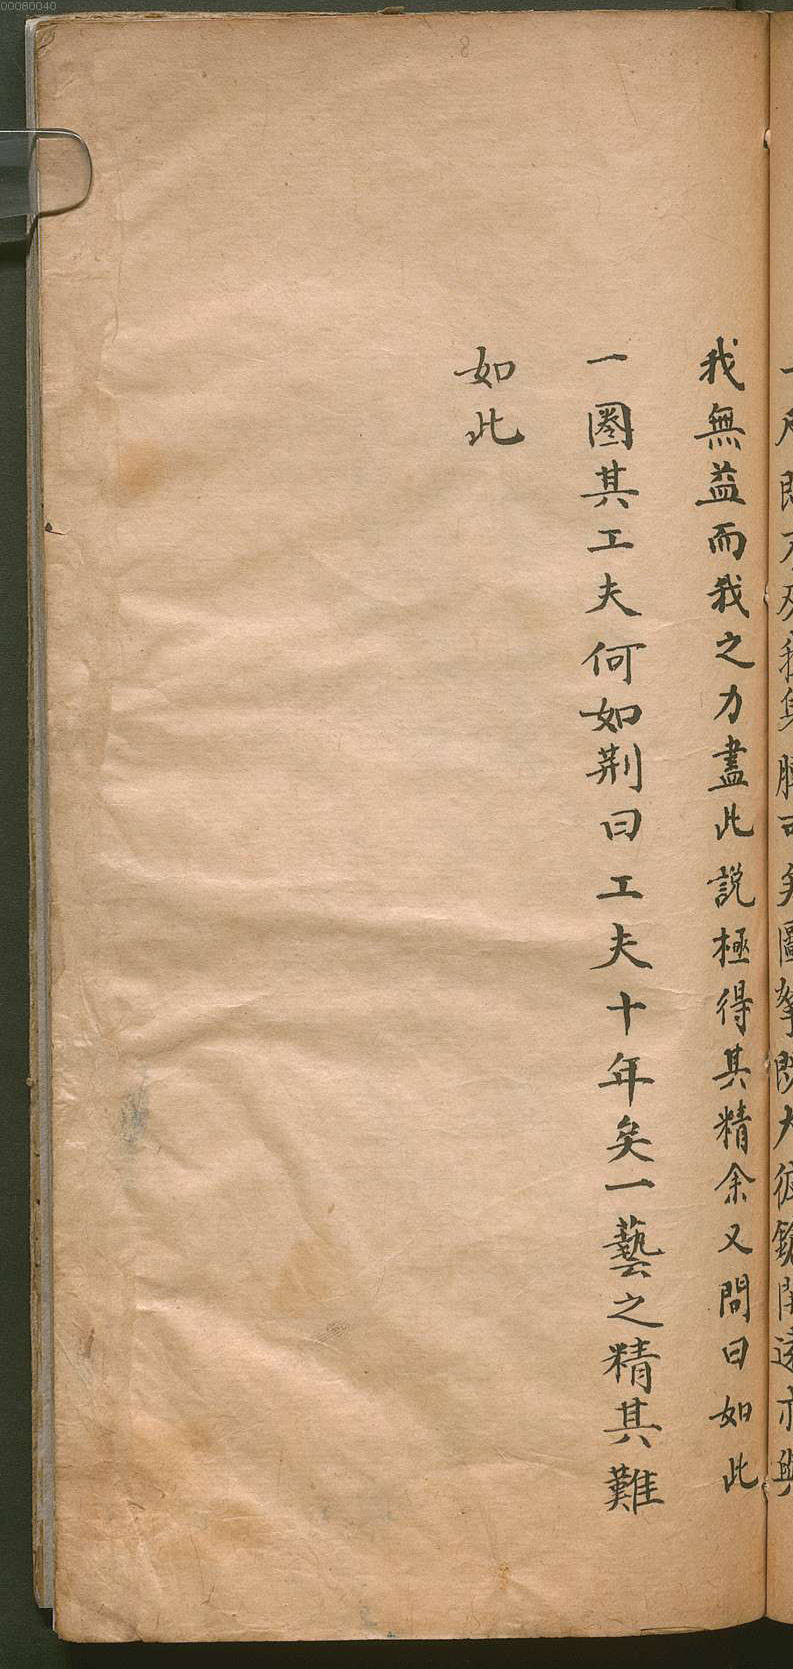 00080040
8
我無益而我之力盡此説極得其精余又問曰如此
一圏其工夫何如荆曰工夫十年矣一藝之精其難
如此